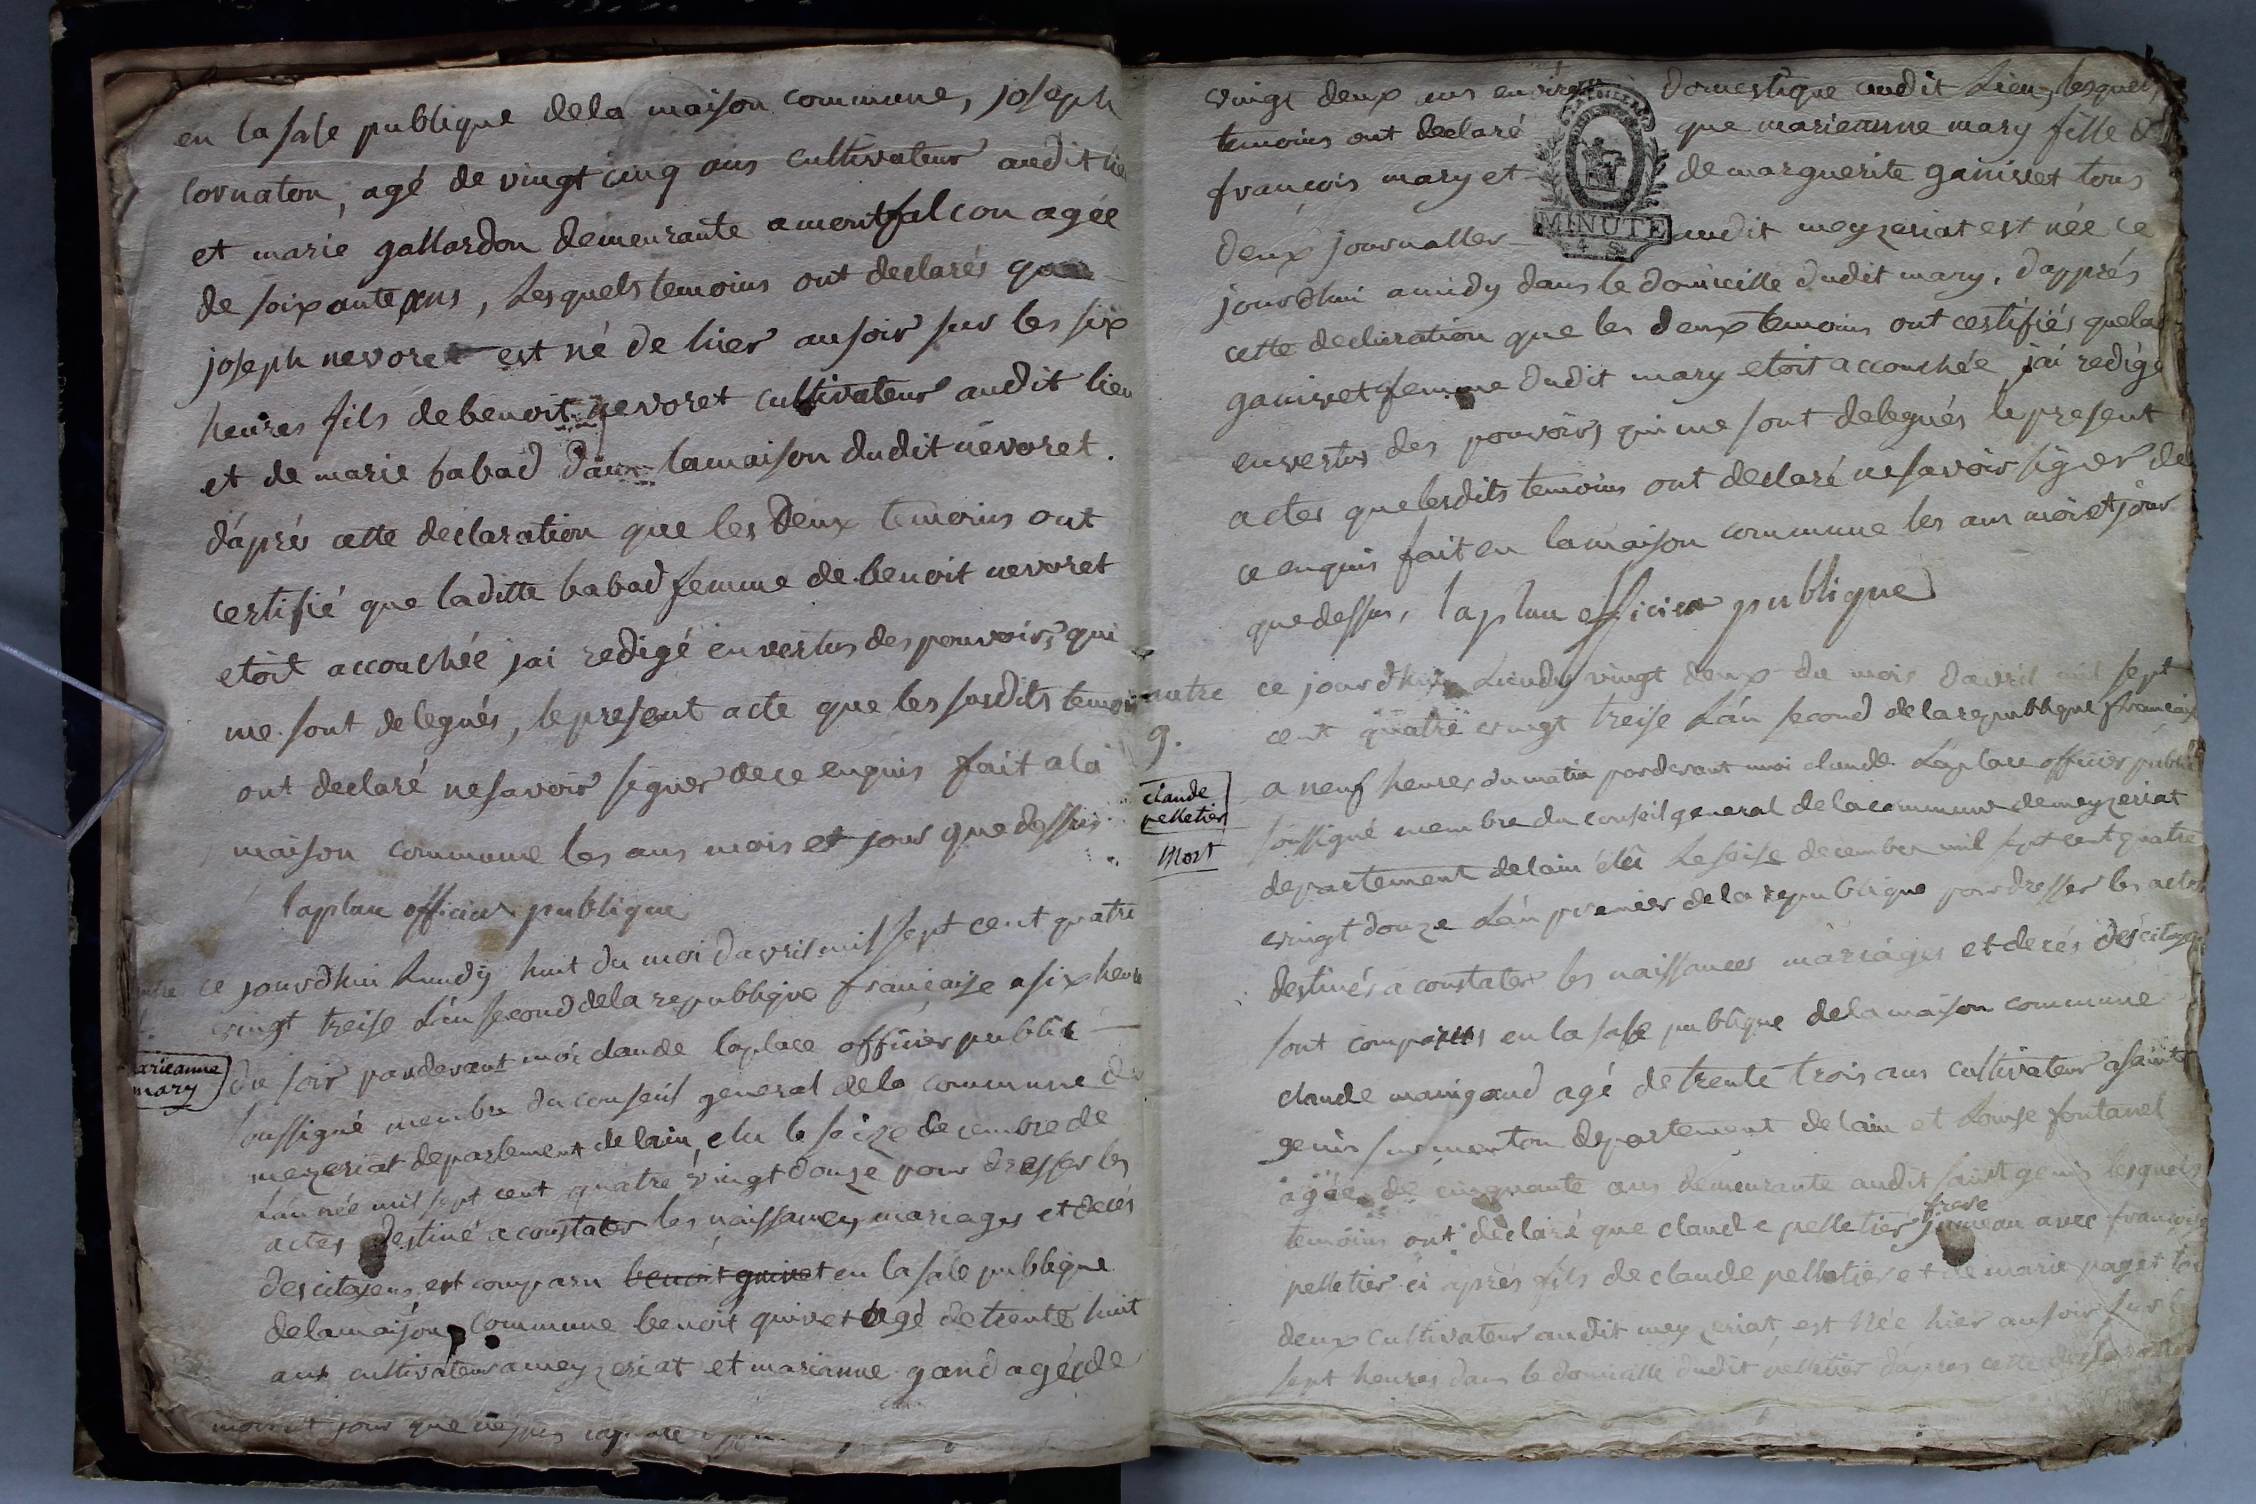 en la sale publique dela maison commune, joseph
cornaton, agé de vingt cinq ans cultivateur audit lieu
et marie gallardon demeurante a montfalcon agée
de soixante ans, Lesquels temoins ont declarés que
joseph nevoret est né de hier au soir sur les six
heures fils de benoit nevoret cultivateur audit lieu
et de marie babad dans lamaison dudit nevoret.
d'aprés cette declaration que les deux temoins ont
certifié que laditte babad femme de benoit nevoret
etoit accouchée jai redigé en vertus des pouvoirs qui
me sont delegués, le present acte que les susdits temoins
ont declaré ne savoir signer de ce enquis fait a la
maison commune les ans mois et jour que dessus
laplace officier publique
ce jourdhui Lundy huit du moi davril mil sept cent quatre
vingt treise L'an second dela republique française a six heures
marieanne
mary
du soir pardevant moi claude laplace officier public
soussigné membre du conseil general dela commune de
mezeriat departement de lain, elu le seize decembre de
L'année mil sept cent quatre vingt douze pour dresser les
actes destiné a constater les naissances mariages et decés
des citoyens est comparu benoit quivet en la sale publique
dela maison commune benoit quivet agé de trente huit
ans cultivateur a meyzeriat et marianne gand agée de
mois et jour que dessus laplace
vingt deux ans environ domestique audit Lieu, lesquels
temoins ont declaré que marieanne mary fille de
françois mary et de marguerite ganivet tous
MINUTE
4 S
deux journallier audit meyzeriat est née ce
jourdhui a midy dans le domicille dudit mary, d'aprés
cette declaration que les deux temoins ont certifiés que la
ganivet femme dudit mary etoit accouchée jai redigé
en vertus des pouvoirs qui me sont delegués le present
actes que lesdits temoins ont declaré ne savoir signer de
ce enquis fait en lamaison commune les ans mois et jour
que dessus, laplace officier publique
autre ce jourdhuy Lundy vingt deux du mois davril mil sept
9. cent quatre vingt treise L'an second dela republique française
a neuf heures du matin pardevant moi claude Laplace officier public
claude
pelletier
mort
soussigné membre du conseil general de la commune de meyzeriat
departement de lain élû Le seise decembre mil sept cent quatre
vingt douze L'an premier dela republique pour dresser les actes
destinés a constater les naissances mariages et decés des citoyens
sont comparus en la sale publique dela maison commune
claude maingand agé de trente trois ans cultivateur a saint
genis sur menton departement de lain et Louise fontanel
agée de cinquante ans demeurante audit saint genis lesquels
temoins ont declaré que claude pelletier frere jumeau avec françoise
pelletier ci aprés fils de claude pelletier et de marie paget tous
deux cultivateur audit meyzeriat, est Née hier au soir sur les
sept heures dans le domicille dudit pelletier d'apres cette declaration